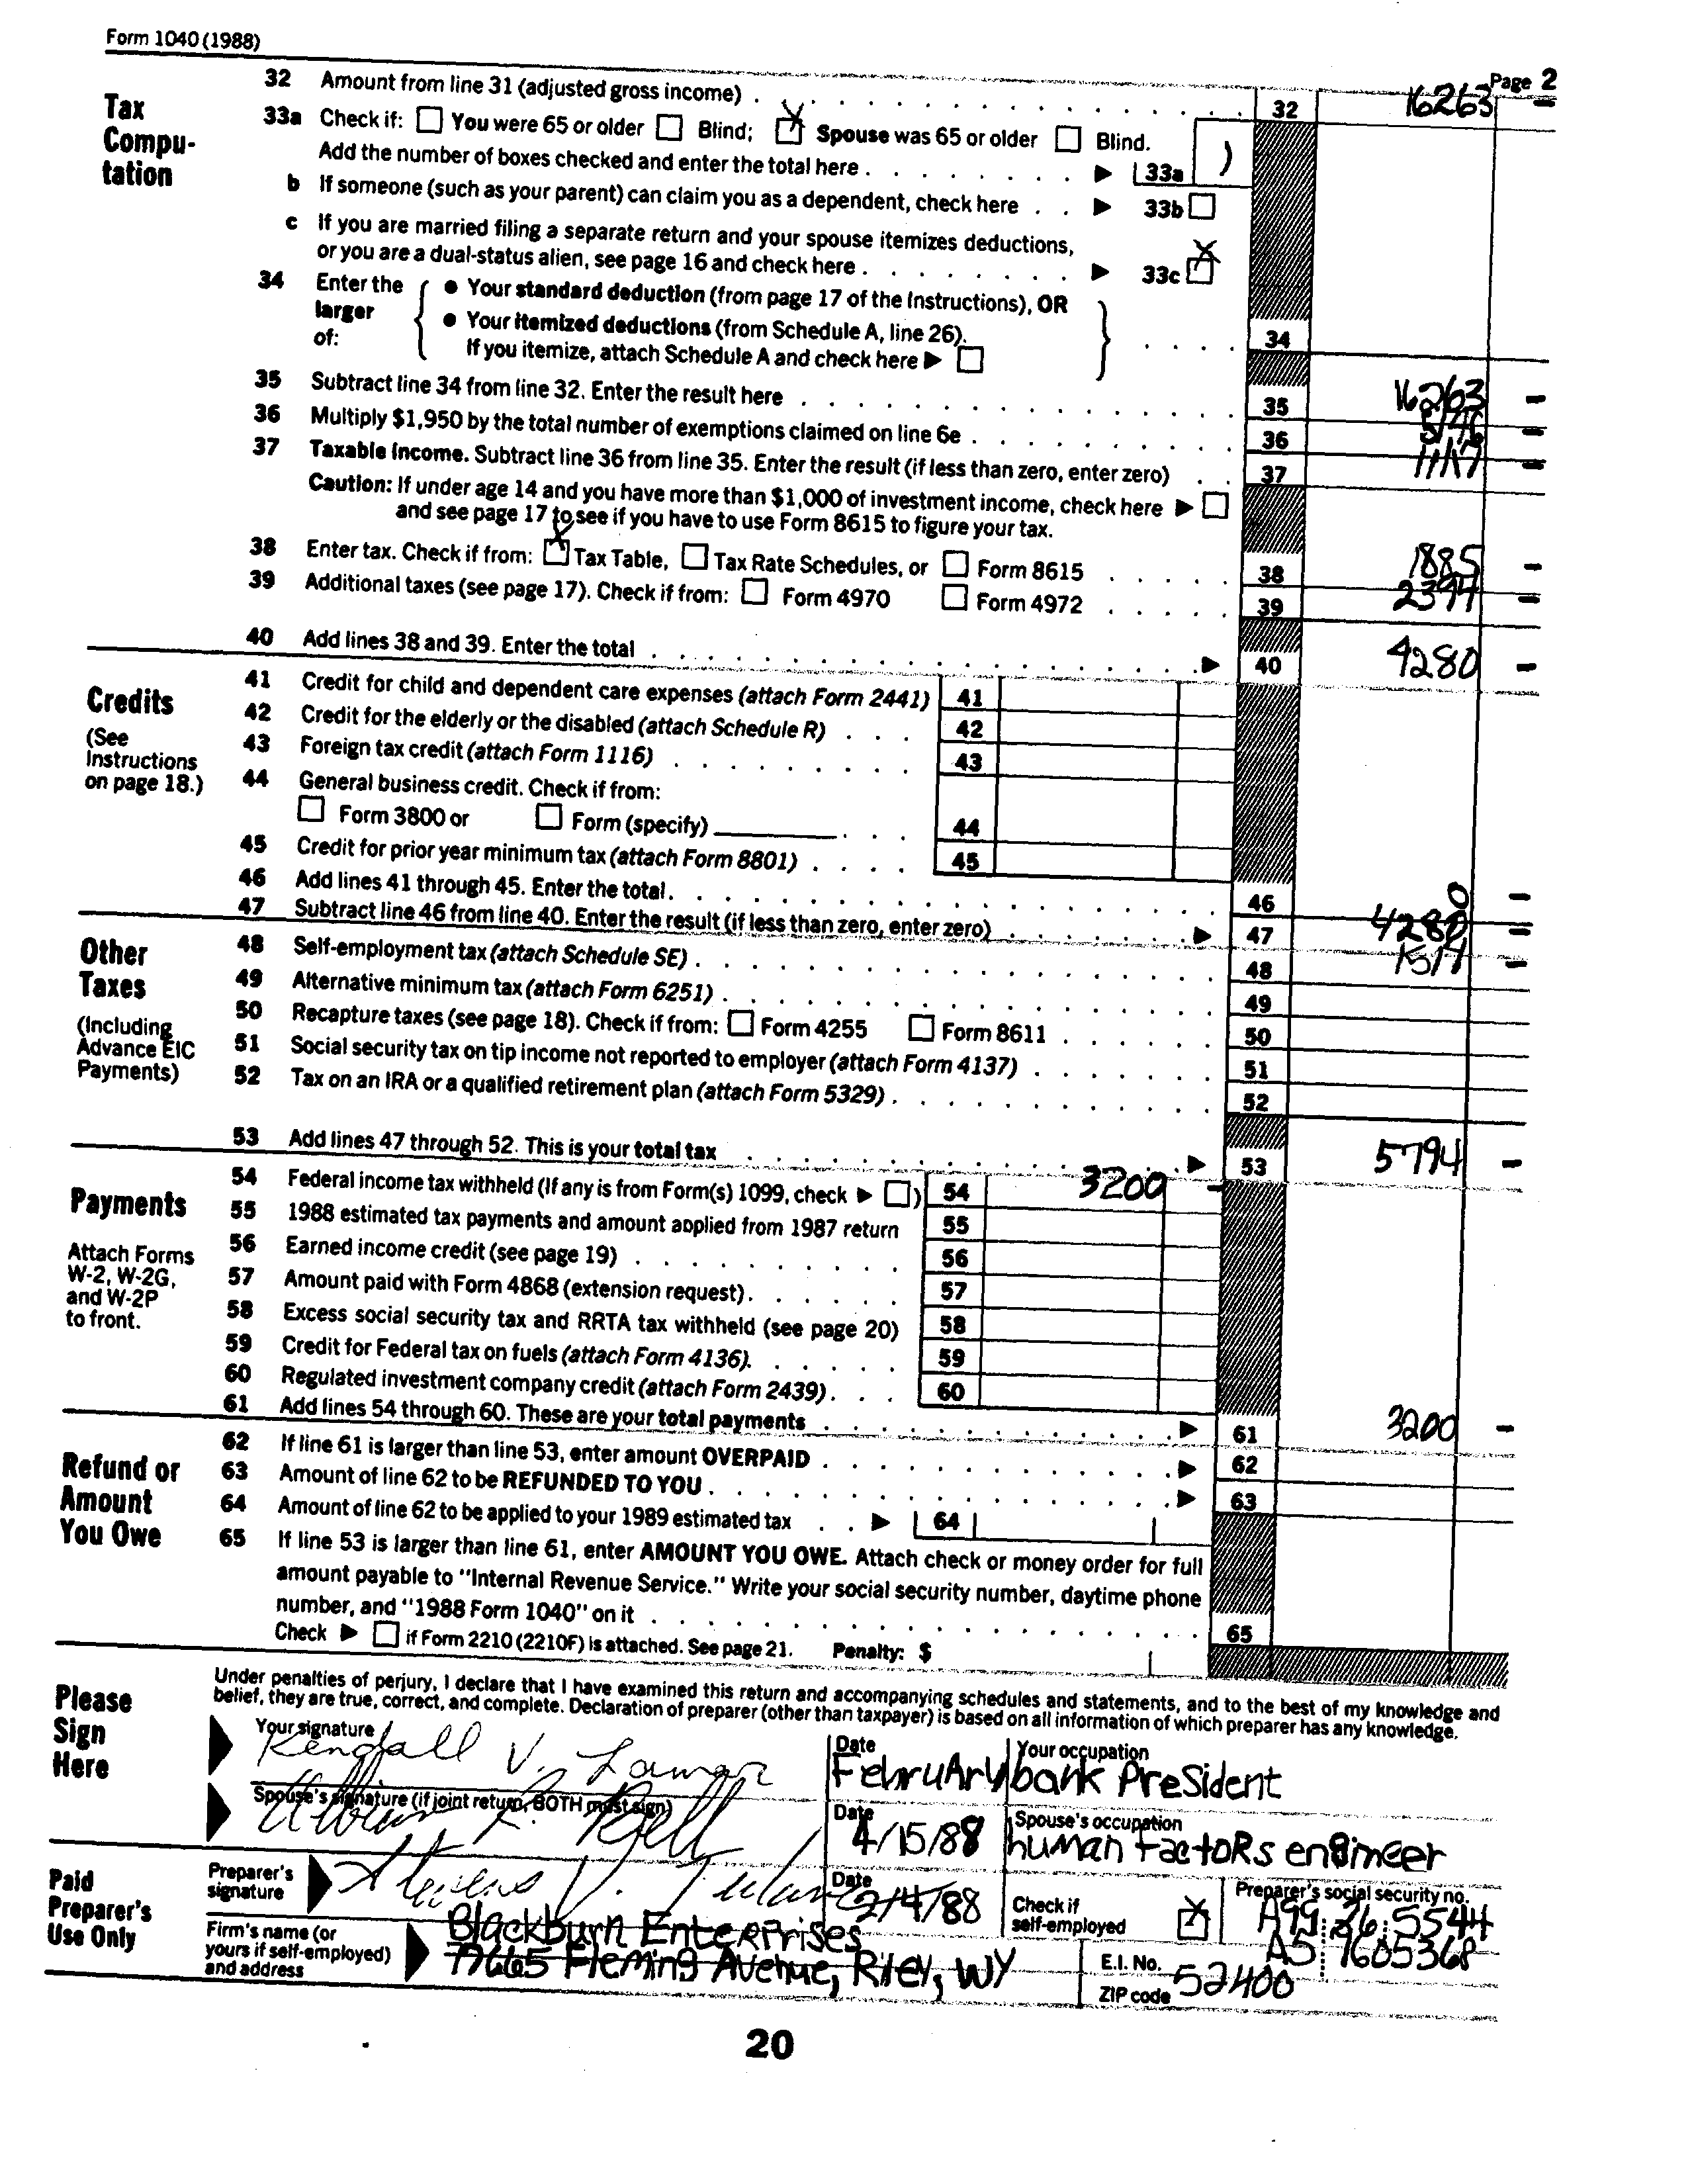 Form 1040 (1988)
Page 2
Tax Compu-tation
32 Amount from line 31 (adjusted gross income) . 32 16263 -
33a Check if: You were 65 or older Blind; X Spouse was 65 or older Blind.
Add the number of boxes checked and enter the total here . ▶ 33a
b If someone (such as your parent) can claim you as a dependent, check here . . ▶ 33b
c If you are married filing a separate return and your spouse itemizes deductions,
or you are a dual-status alien, see page 16 and check here . ▶ 33c X
34 Enter the larger of:
• Your standard deduction (from page 17 of the Instructions), OR
• Your itemized deductions (from Schedule A, line 26).
If you itemize, attach Schedule A and check here ▶
34
35 Subtract line 34 from line 32. Enter the result here . 35 16263 -
36 Multiply $1,950 by the total number of exemptions claimed on line 6e . 36 5146 -
37 Taxable Income. Subtract line 36 from line 35. Enter the result (if less than zero, enter zero) . . 37 11117 -
Caution: If under age 14 and you have more than $1,000 of investment income, check here ▶
and see page 17 to see if you have to use Form 8615 to figure your tax.
38 Enter tax. Check if from: X Tax Table, Tax Rate Schedules, or Form 8615 . 38 1885 -
39 Additional taxes (see page 17). Check if from: Form 4970 Form 4972 . 39 -
40 Add lines 38 and 39. Enter the total . ▶ 40 4280 -
Credits
(See Instructions on page 18.)
41 Credit for child and dependent care expenses (attach Form 2441) 41
42 Credit for the elderly or the disabled (attach Schedule R) . . . 42
43 Foreign tax credit (attach Form 1116) . 43
44 General business credit. Check if from:
Form 3800 or Form (specify) . . . 44
45 Credit for prior year minimum tax (attach Form 8801) . . . . 45
46 Add lines 41 through 45. Enter the total. 46 0 -
47 Subtract line 46 from line 40. Enter the result (if less than zero, enter zero) . ▶ 47 4280 -
Other Taxes
(Including Advance EIC Payments)
48 Self-employment tax (attach Schedule SE) . 48 1514 -
49 Alternative minimum tax (attach Form 6251) . 49
50 Recapture taxes (see page 18). Check if from: Form 4255 Form 8611 . 50
51 Social security tax on tip income not reported to employer (attach Form 4137) . 51
52 Tax on an IRA or a qualified retirement plan (attach Form 5329) . 52
53 Add lines 47 through 52. This is your total tax . ▶ 53 5794 -
Payments
Attach Forms W-2, W-2G, and W-2P to front.
54 Federal income tax withheld (If any is from Form(s) 1099, check ▶ ) 54 3200 -
55 1988 estimated tax payments and amount applied from 1987 return 55
56 Earned income credit (see page 19) . 56
57 Amount paid with Form 4868 (extension request) . 57
58 Excess social security tax and RRTA tax withheld (see page 20) 58
59 Credit for Federal tax on fuels (attach Form 4136). 59
60 Regulated investment company credit (attach Form 2439) . . . 60
61 Add lines 54 through 60. These are your total payments . ▶ 61 3200 -
Refund or Amount You Owe
62 If line 61 is larger than line 53, enter amount OVERPAID . ▶ 62
63 Amount of line 62 to be REFUNDED TO YOU . ▶ 63
64 Amount of line 62 to be applied to your 1989 estimated tax . . ▶ 64
65 If line 53 is larger than line 61, enter AMOUNT YOU OWE. Attach check or money order for full
amount payable to "Internal Revenue Service." Write your social security number, daytime phone
number, and "1988 Form 1040" on it . 65
Check ▶ if Form 2210 (2210F) is attached. See page 21. Penalty: $
Please Sign Here
Under penalties of perjury, I declare that I have examined this return and accompanying schedules and statements, and to the best of my knowledge and
belief, they are true, correct, and complete. Declaration of preparer (other than taxpayer) is based on all information of which preparer has any knowledge.
Your signature Kendall V. Lamar
Date February
Your occupation bank PreSident
Spouse's signature (if joint return, BOTH must sign)
Date 4/15/88
Spouse's occupation human factoRs engineer
Paid Preparer's Use Only
Preparer's signature
Date 2/4/88
Check if self-employed X
Preparer's social security no. A99 26 5544
Firm's name (or yours if self-employed) and address
Blackburn EnterPrises
77665 Fleming Avenue, Riley, WY
E.I. No. A5 7605368
ZIP code 52400
20